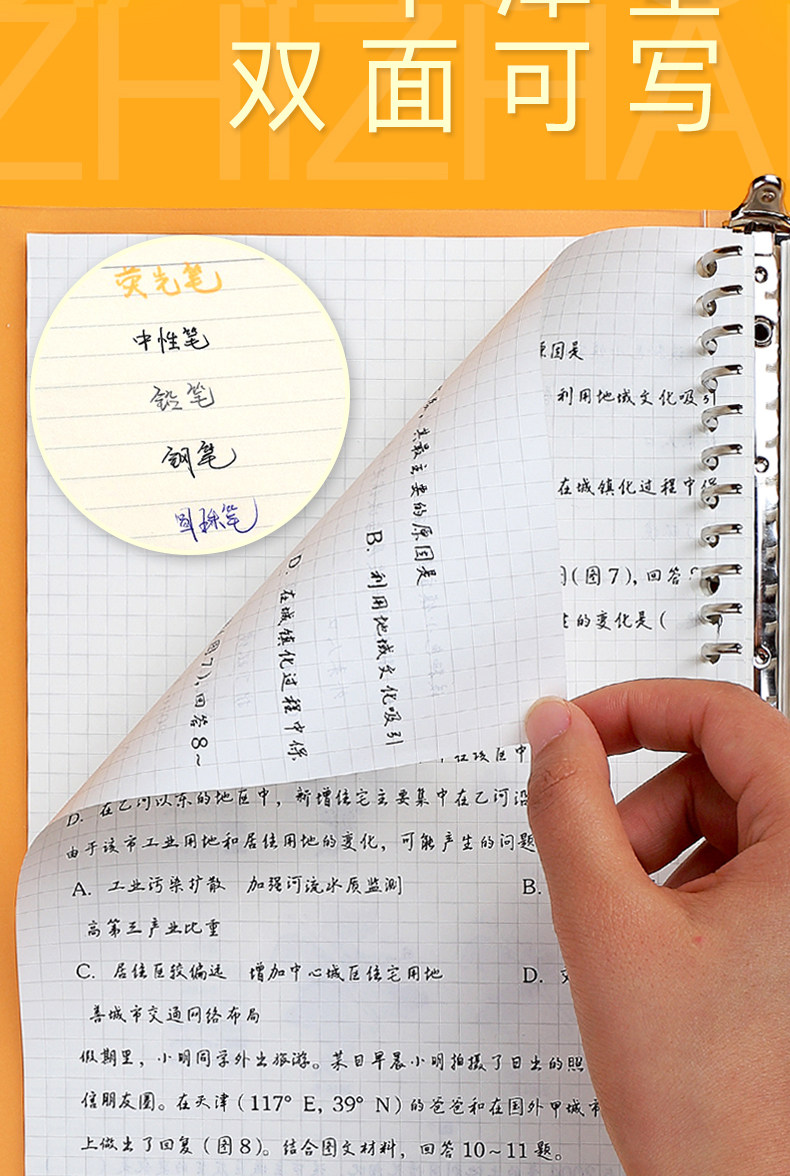 双面可写
荧光笔
中性笔
铅笔
钢笔
圆珠笔
原因是
利用地域文化吸引
在城镇化过程中保
(图7),回答8
生的变化是(
其最主要的原因是
B. 利用地域文化吸引
D. 在城镇化过程中保
图7),回答8~
D. 在乙河以东的地区中,新增住宅主要集中在乙河沿
由于该市工业用地和居住用地的变化,可能产生的问题
A. 工业污染扩散 加强河流水质监测 B.
高第三产业比重
C. 居住区较偏远 增加中心城区住宅用地 D.
善城市交通网络布局
假期里,小明同学外出旅游。某日早晨小明拍摄了日出的照
信朋友圈。在天津(117° E, 39° N)的爸爸和在国外甲城市
上做出了回复(图8)。结合图文材料,回答10~11题。